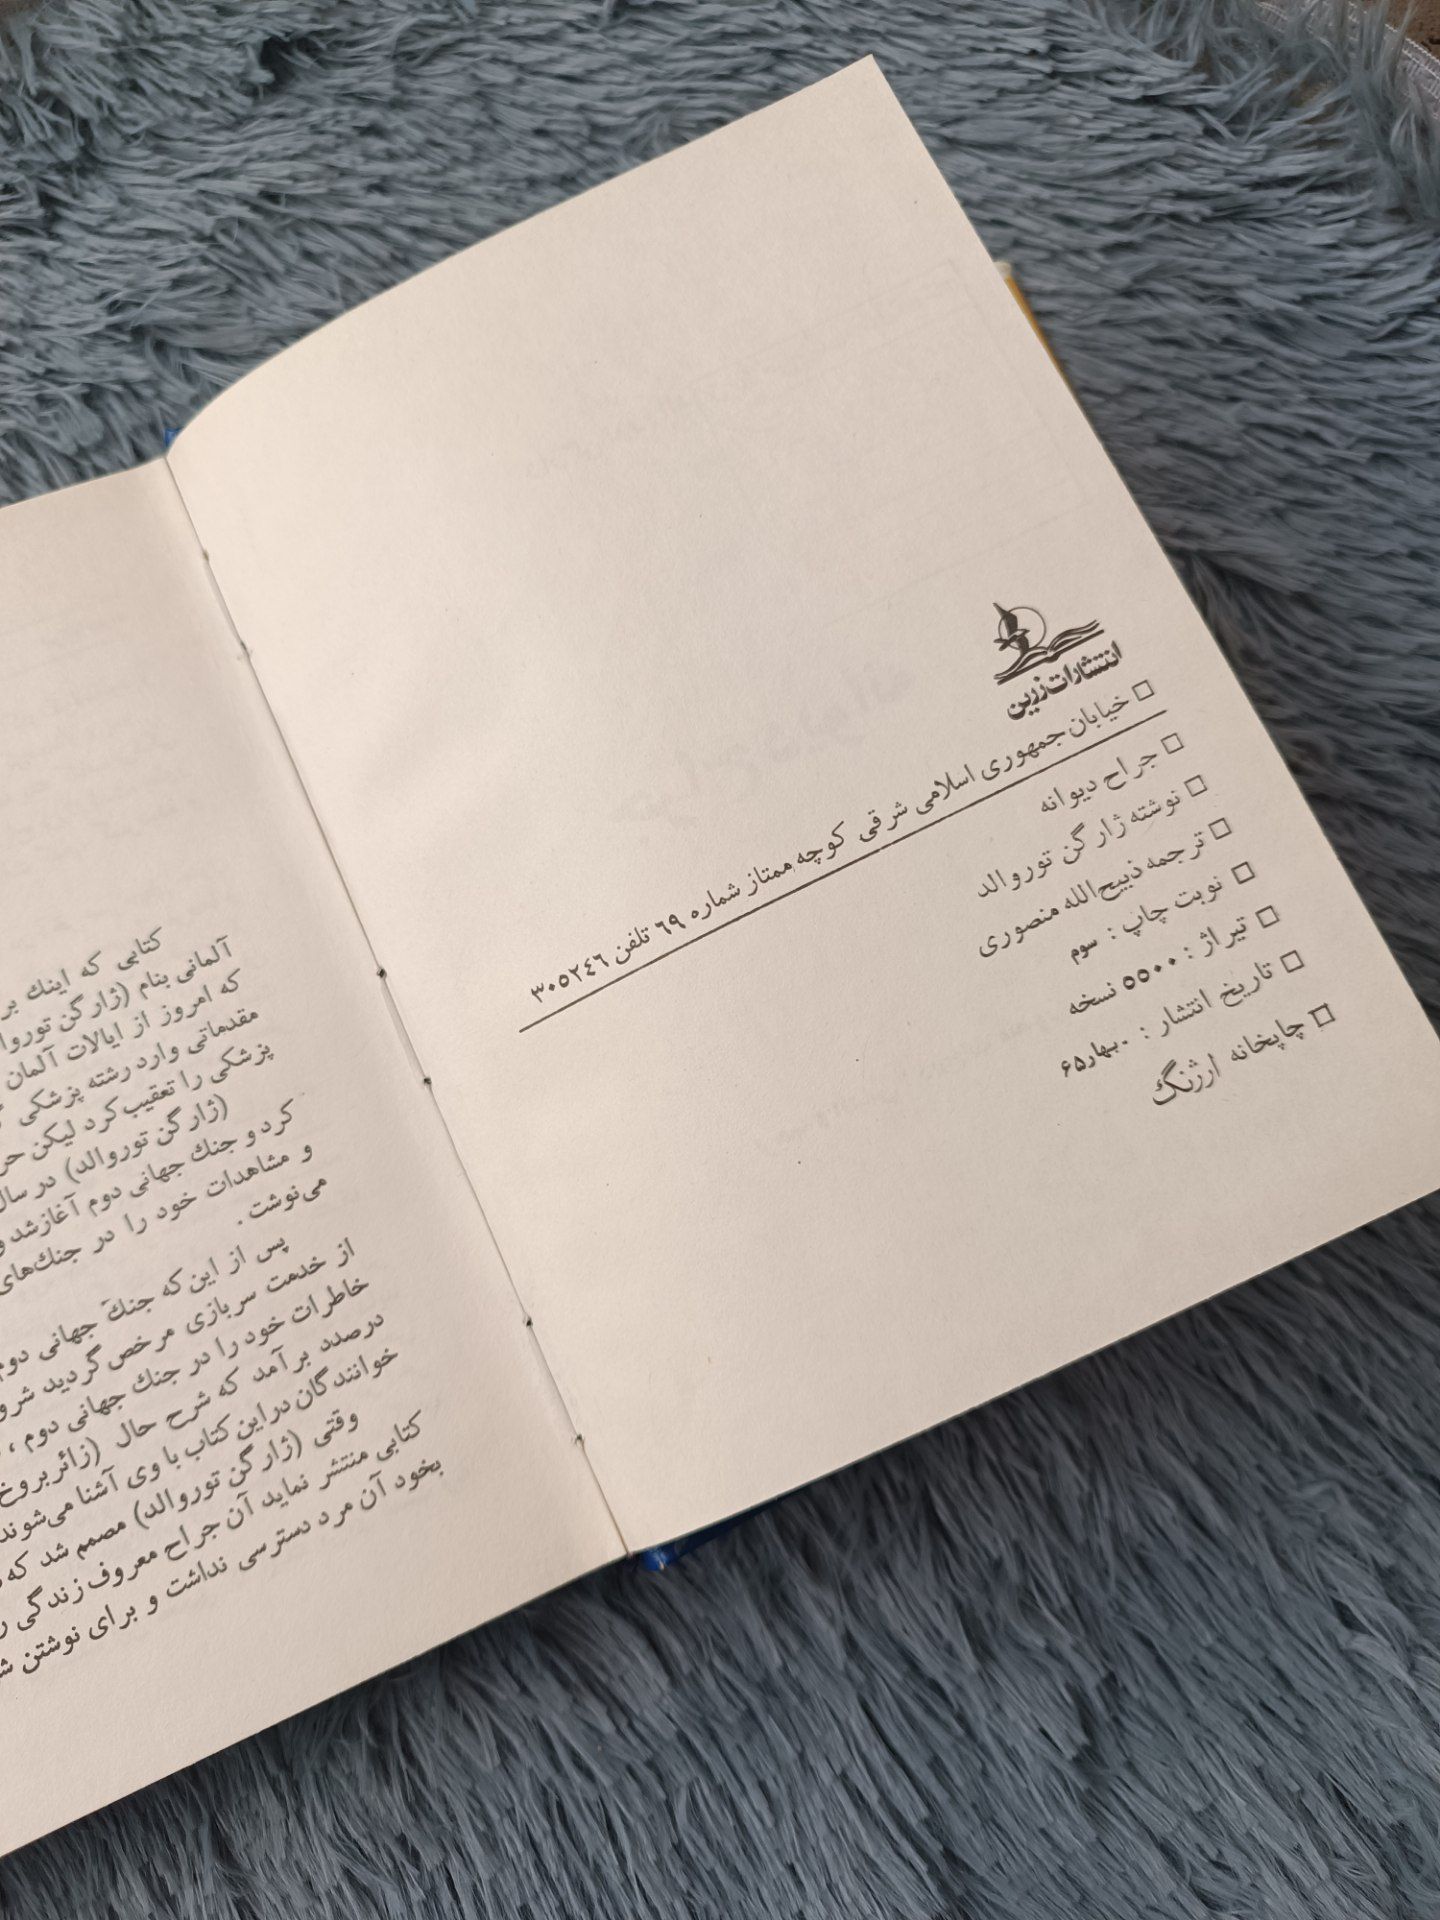 انتشارات زرین
□ خیابان جمهوری اسلامی شرقی کوچه ممتاز شماره ٦٩ تلفن ٣٠٥٢٤٦
□ جراح دیوانه
□ نوشته ژار گن توروالد
□ ترجمه ذبیح‌الله منصوری
□ نوبت چاپ : سوم
□ تیراژ : ۵۵۰۰ نسخه
□ تاریخ انتشار : بهار ۶۵
□ چاپخانه ارژنگ
کتابی که اینك بر
آلمانی بنام (ژار گن توروا
که امروز از ایالات آلمان
مقدماتی وارد رشته پزشکی
پزشکی را تعقیب کرد لیکن حر
(ژار گن توروالد) در سال
کرد و جنك جهانی دوم آغازشد و
و مشاهدات خود را در جنك‌های
می‌نوشت .
پس از این که جنك جهانی دوم
از خدمت سربازی مرخص گردید شرو
خاطرات خود را در جنك جهانی دوم ،
درصدد بر آمد که شرح حال (زائربروخ
خوانندگان دراین کتاب با وی آشنا می‌شوند
وقتی (ژار گن توروالد) مصمم شد که
کتابی منتشر نماید آن جراح معروف زندگی ر
بخود آن مرد دسترسی نداشت و برای نوشتن ش